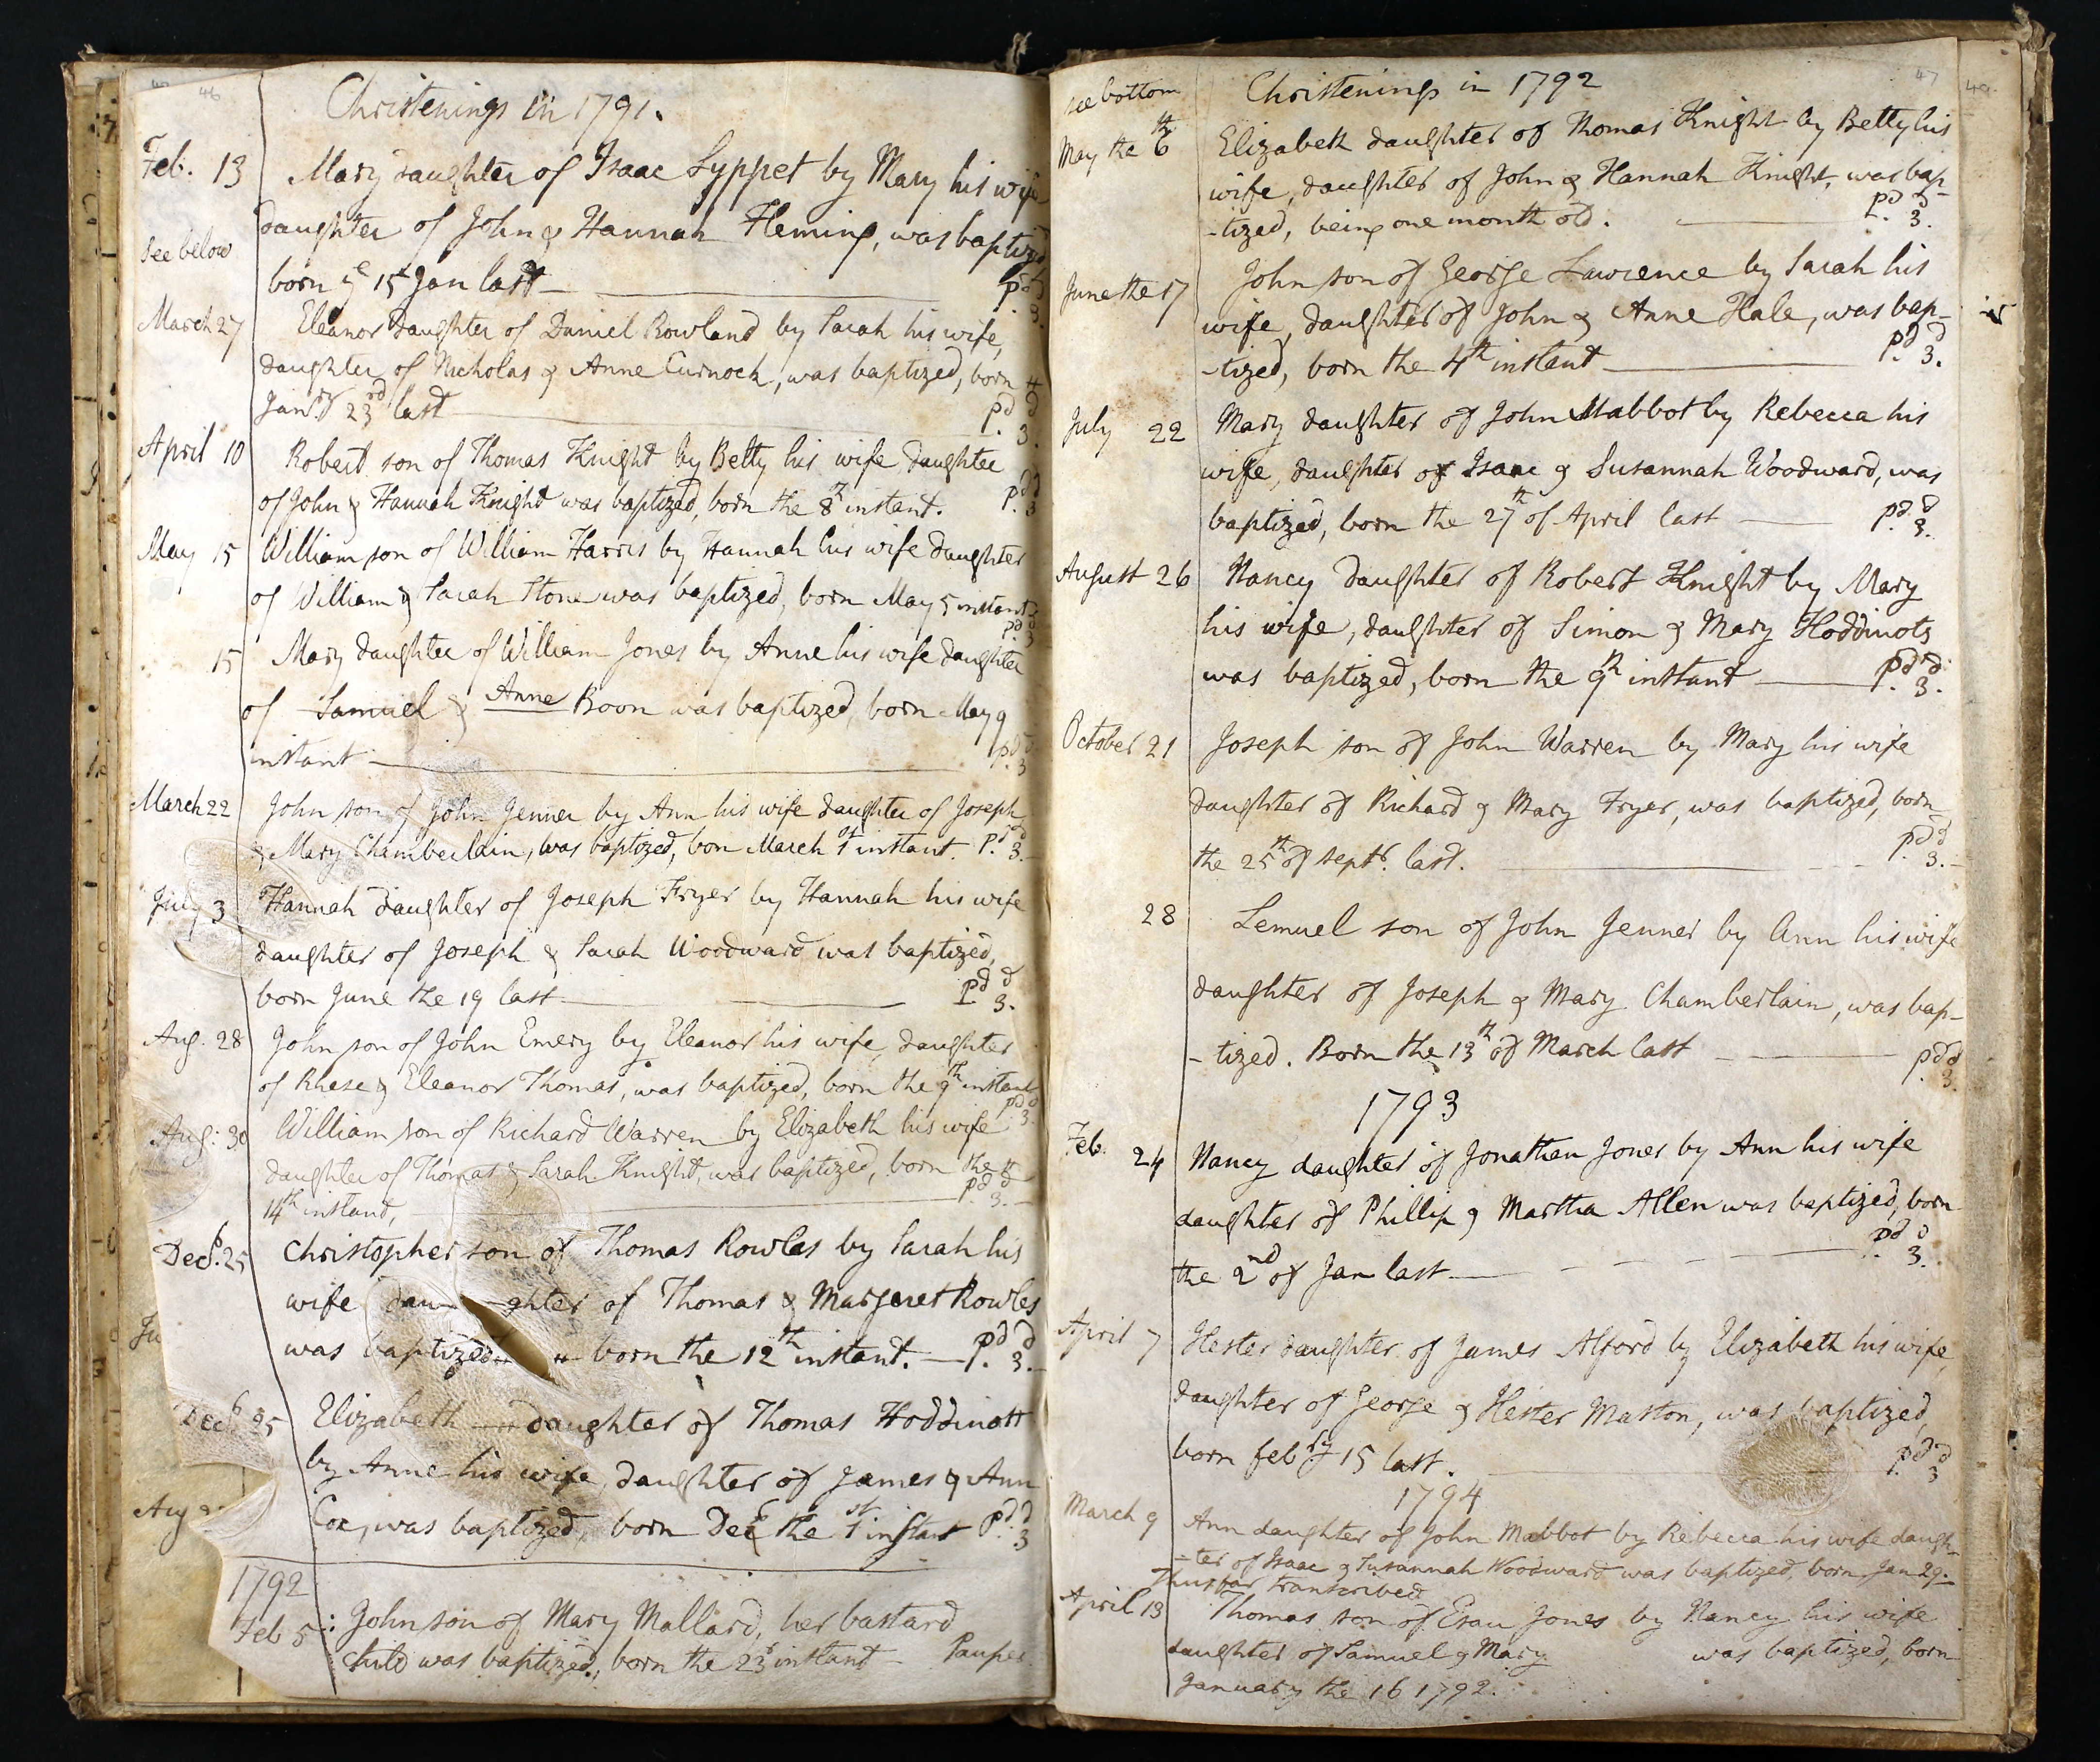 46
Christenings in 1791.
Feb. 13 Mary daughter of Isaac Lyppet by Mary his wife
daughter of John & Hannah Fleming, was baptized
see below
born ye 15th Jan last pd 3d.
March 27 Eleanor daughter of Daniel Rowland by Sarah his wife,
daughter of Nicholas & Anne Curnock, was baptized, born
Janry 23rd last pd 3d.
April 10 Robert son of Thomas Knight by Betty his wife daughter
of John & Hannah Knight was baptized, born the 8th instant. pd 3d
May 15 William son of William Harris by Hannah his wife daughter
of William & Sarah Stone was baptized, born May 5 instant
pd 3d
15 Mary daughter of William Jones by Anne his wife daughter
of Samuel & Anne Boon was baptized, born May 9
instant pd 3d
March 22 John son of John Jenner by Ann his wife daughter of Joseph
& Mary Chamberlain, was baptized, born March 1st instant. Pd 3d.
July 3 Hannah daughter of Joseph Fryer by Hannah his wife
daughter of Joseph & Sarah Woodward was baptized,
born June the 19 last pd 3d.
Aug. 28 John son of John Emery by Eleanor his wife, daughter
of Rhese & Eleanor Thomas, was baptized, born the 9th instant
pd 3d
Aug: 30 William son of Richard Warren by Elizabeth his wife
daughter of Thomas & Sarah Knight, was baptized, born the
14th instant, pd 3d.
Decb. 25 Christopher son of Thomas Rowles by Sarah his
wife dau-ghter of Thomas & Margeret Rowles
was baptized born the 12th instant. pd 3d.
Decb 25 Elizabeth daughter of Thomas Hoddinott
by Anne his wife, daughter of James & Ann
Cox, was baptized, born Dec the 1st instant Pd 3d
1792
Feb 5: John son of Mary Mallard, her bastard
child was baptized, born the 23 instant Pauper
47
see bottom
Christenings in 1792
May the 6th Elizabeth daughter of Thomas Knight by Betty his
wife, daughter of John & Hannah Knight, was bap
-tized, being one month old. pd 3d.
June the 17 John son of George Lawrence by Sarah his
wife, daughter of John & Anne Hale, was bap-
-tized, born the 4th instant pd 3d.
July 22 Mary daughter of John Mabbot by Rebecca his
wife, daughter of Isaac & Susannah Woodward, was
baptized, born the 27th of April last pd. 3d.
August 26 Nancy daughter of Robert Knight by Mary
his wife, daughter of Simon & Mary Hoddinots
was baptized, born the 9th instant pd 3d.
October 21 Joseph son of John Warren by Mary his wife
daughter of Richard & Mary Fryer, was baptized, born
the 25th of Septr. last. pd 3d.
28 Lemuel son of John Jenner by Ann his wife
daughter of Joseph & Mary Chamberlain, was bap-
-tized. Born the 13th of March last pd 3d.
1793
Feb. 24 Nancy daughter of Jonathan Jones by Ann his wife
daughter of Phillip & Martha Allen was baptized, born
the 2nd of Jan last pd 3d.
April 7 Hester daughter of James Alford by Elizabeth his wife,
daughter of George & Hester Maston, was baptized,
born febry 15 last. pd 3d
1794
March 9 Ann daughter of John Mabbot by Rebecca his wife daugh-
-ter of Isaac & Susannah Woodward was baptized, born Jan 29.
Thus far transcribed
April 13 Thomas son of Esau Jones by Nancy his wife
daughter of Samuel & Mary was baptized, born
January the 16 1792.